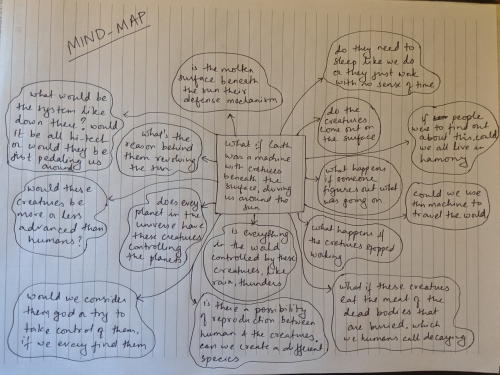 MIND-MAP
is the molten
surface beneath
the sun their
defense mechanism
do they need to
sleep like we do
or they just work
with no sense of time
what would be
the system like
down there? would
it be all hi-tech
or would they be
just pedaling us
around
what's the
reason behind
them revolving
the sun
what if Earth
was a machine
with cretures
beneath the
surface, driving
us around the
sun
do the
creatures
come out on
the surface
if people
were to find out
about this, could
we all live in
harmony
what happens
if someone
figures out what
was going on
could we use
this machine to
travel the world
would these
creatures be
more or less
advanced than
humans?
does every
planet in the
universe have
these creatures
controlling
the planets
is everything
in the world
controlled by these
creatures, like
rain, thunders
what happens if
the creatures stopped
working
would we consider
them god or try to
take control of them,
if we every find them
is there a possibility
of reproduction between
human & the creatures,
can we create a different
species
what if these creatures
eat the meat of the
dead bodies that
are buried, which
we humans call decaying